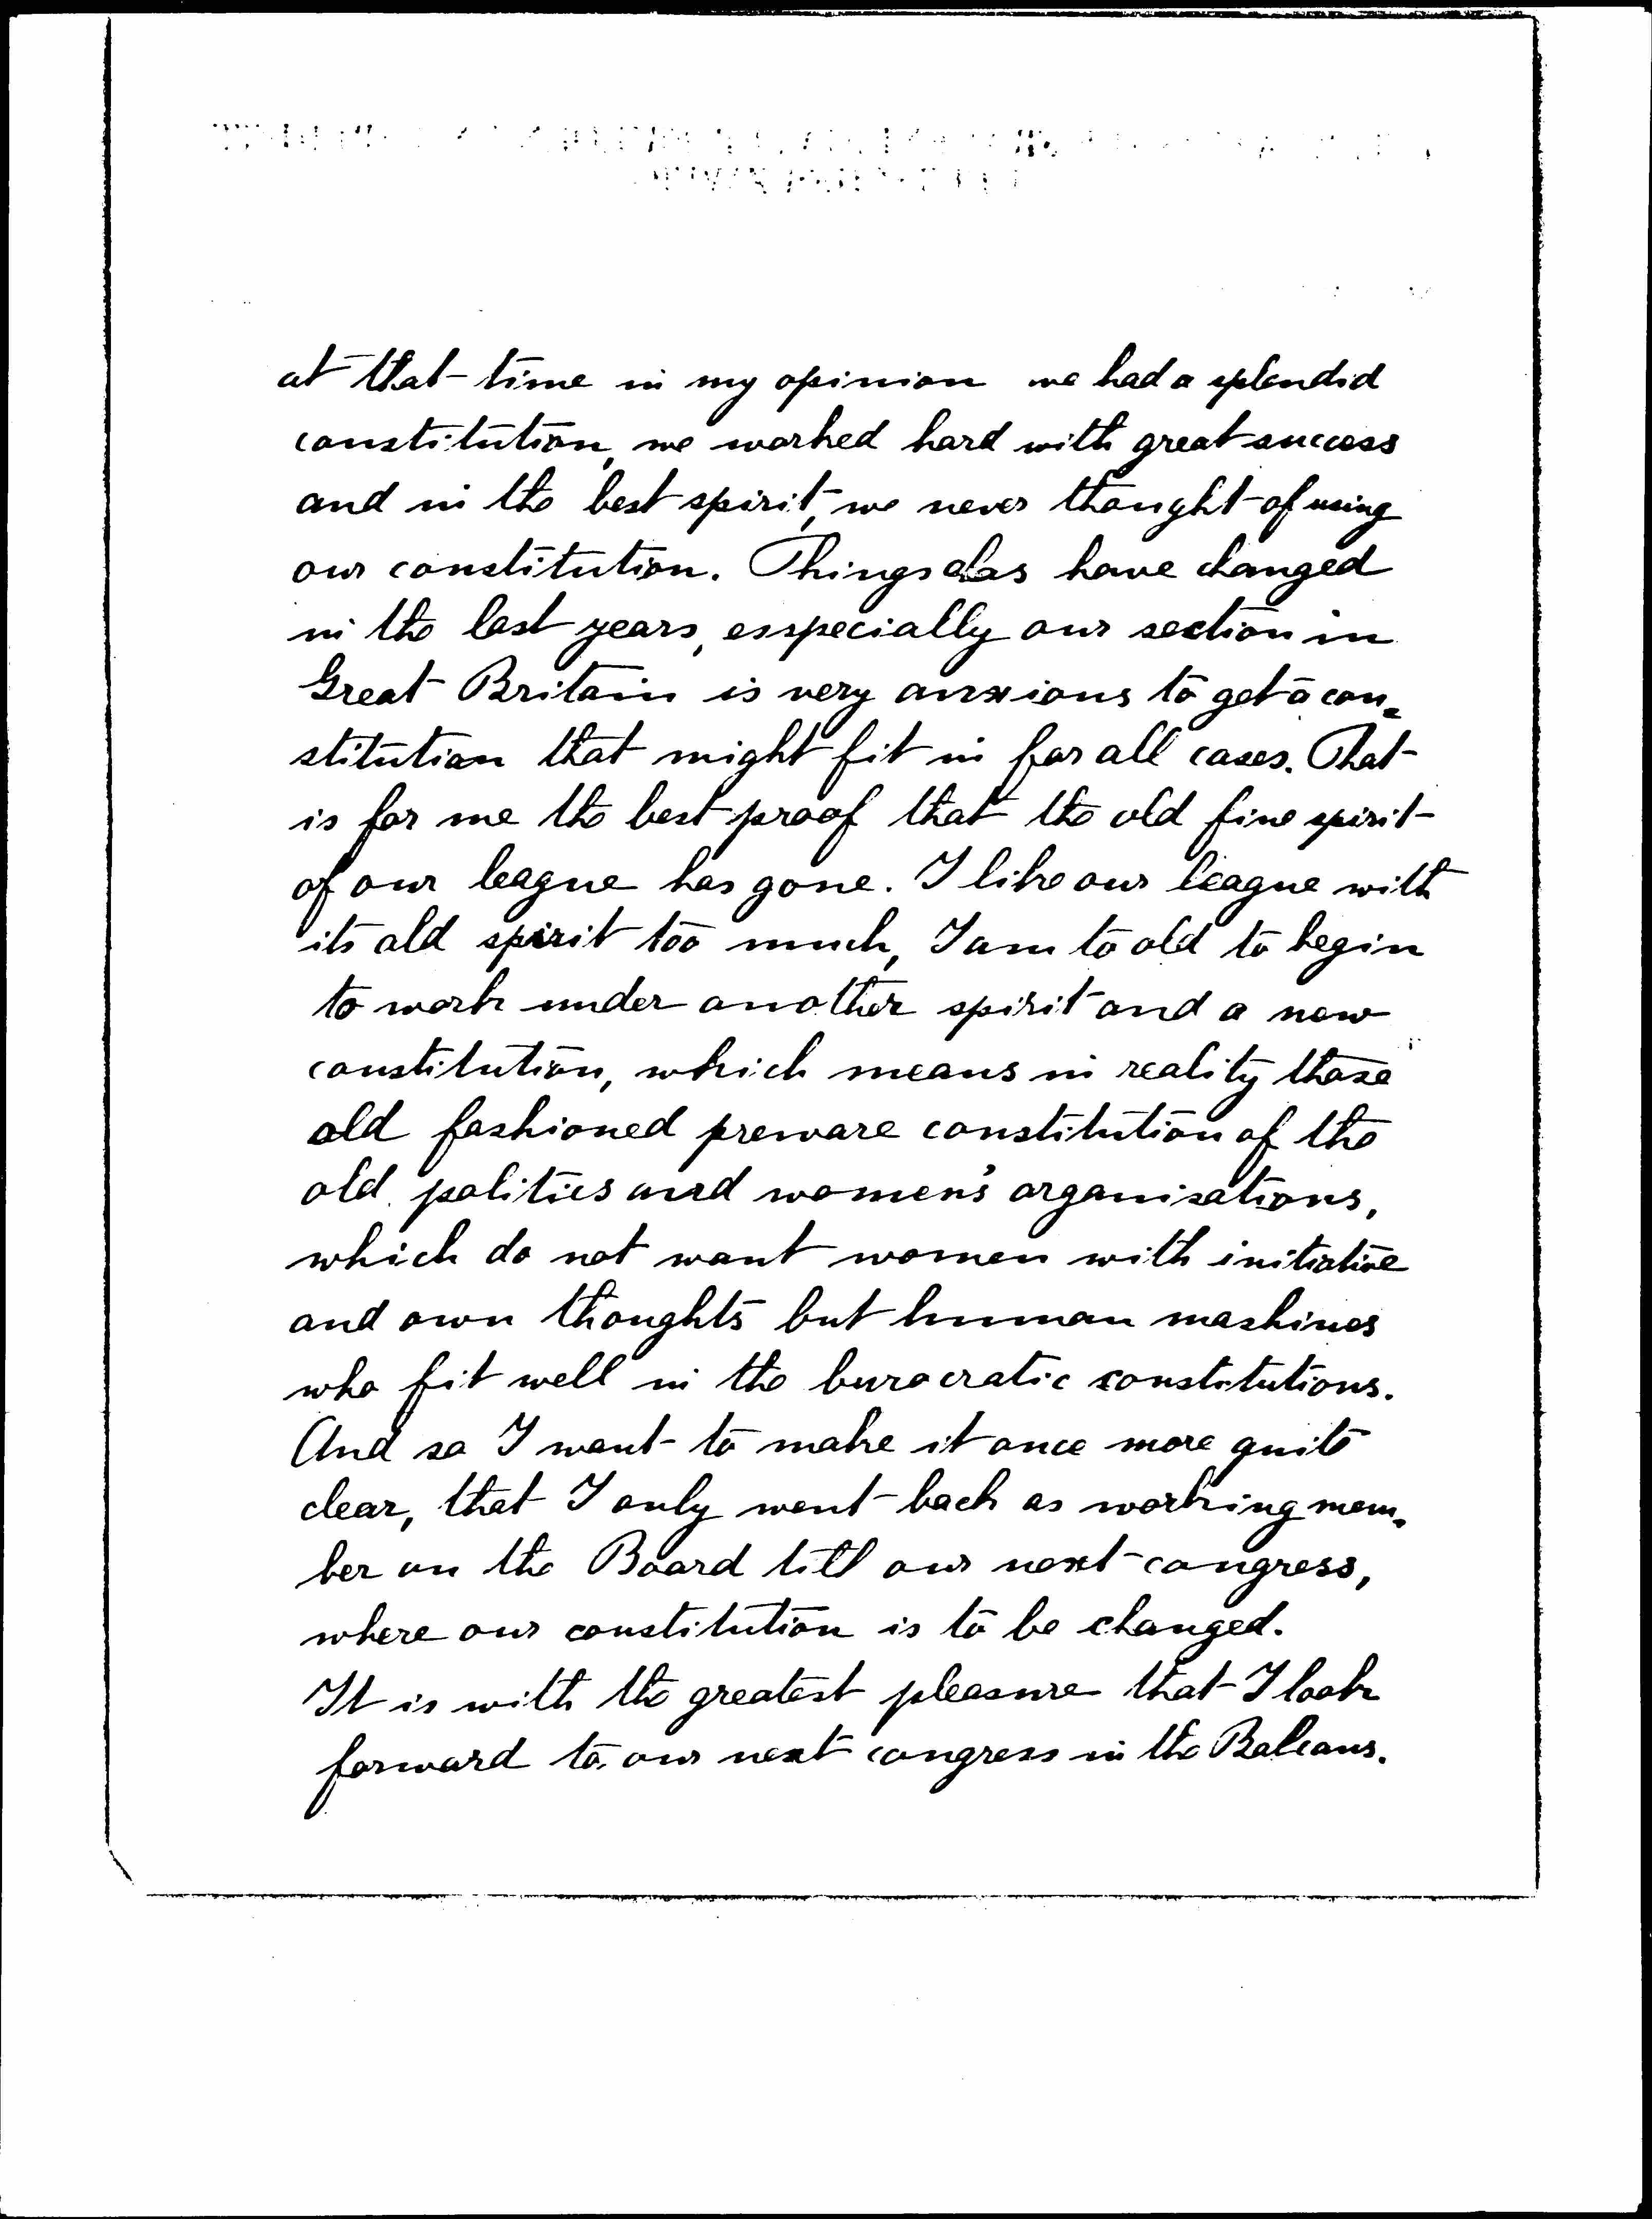 at that time in my opinion we had a splendid
constitution, we worked hard with great success
and in the best spirit, we never thought of using
our constitution. Things alas have changed
in the last years, esspecially our section in
Great Britain is very anxious to get a con=
stitution that might fit in for all cases. That
is for me the best proof that the old fine spirit
of our league has gone. I like our league with
its old spirit too much, I am to old to begin
to work under another spirit and a new
constitution, which means in reality those
old fashioned preware constitution of the
old politics and women's organisations,
which do not want women with initiative
and own thoughts but human mashines
who fit well in the burocratic constitutions.
And so I want to make it once more quite
clear, that I only went back as working mem=
ber on the Board till our next congress,
where our constitution is to be changed.
It is with the greatest pleasure that I look
forward to our next congress in the Balcans.